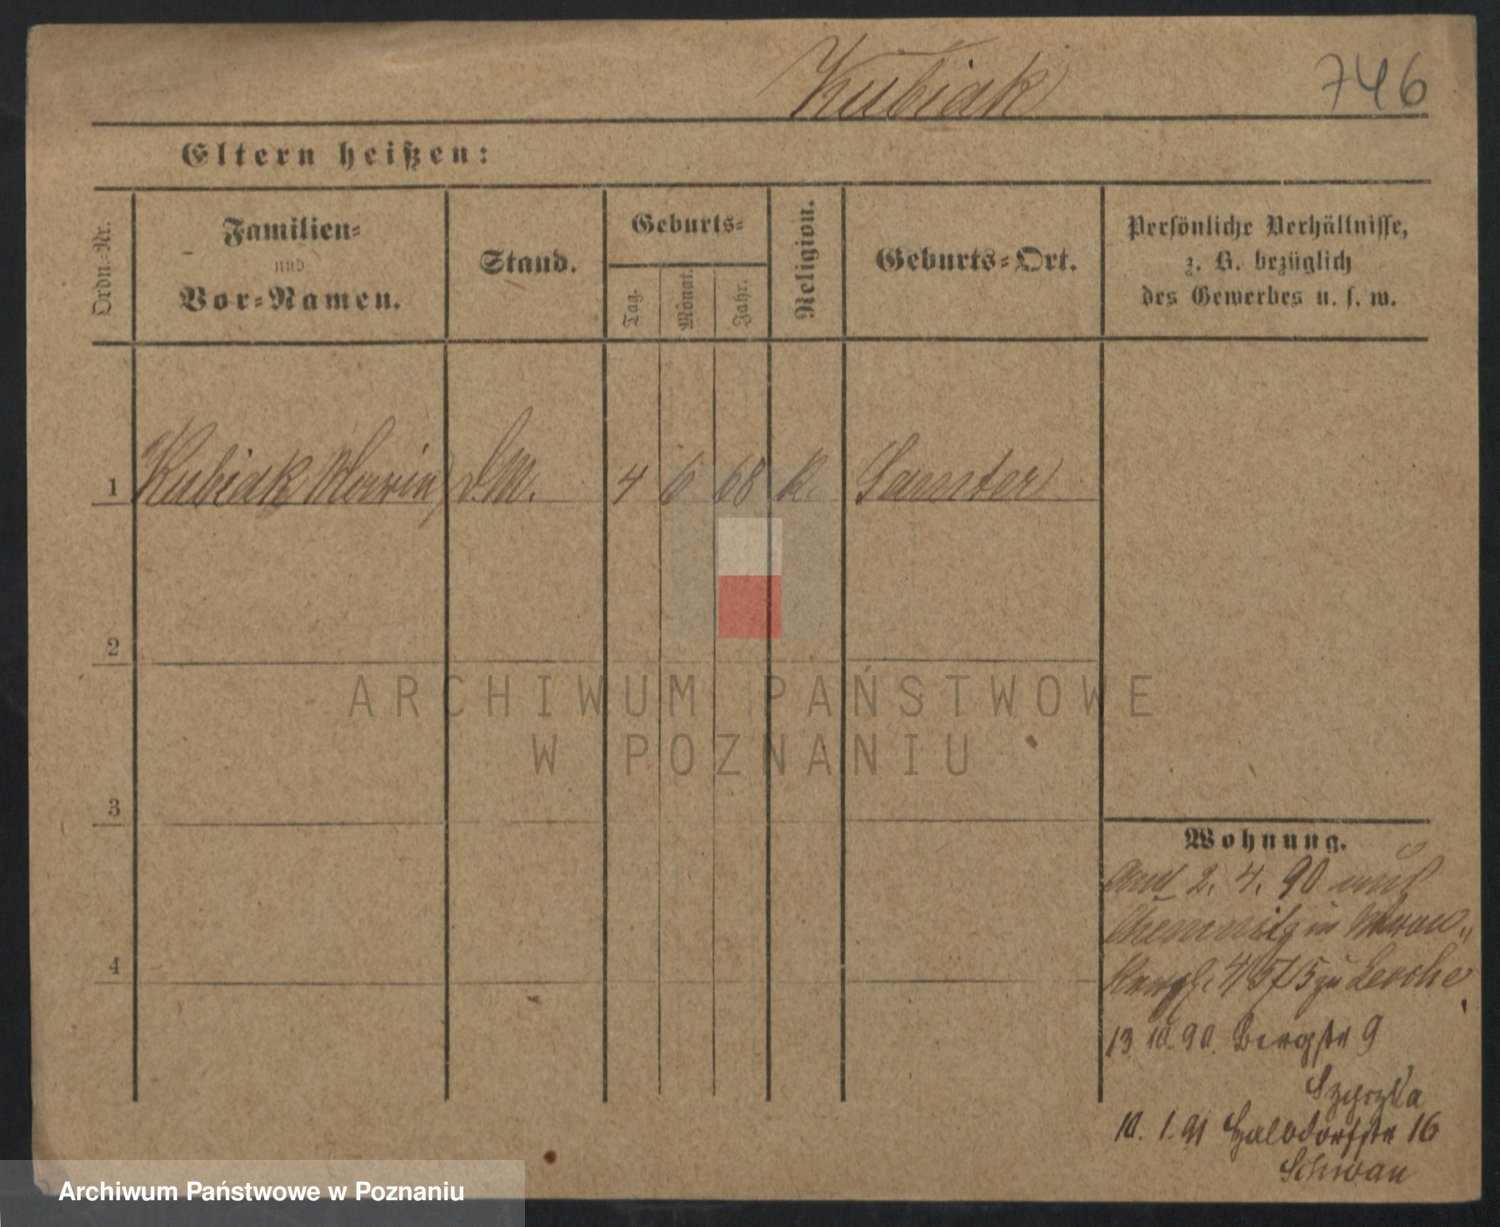 Kubiak
746
Eltern heißen:
Ordn.-Nr.
Familien-
und
Vor-Namen.
Stand.
Geburts-
Tag.
Monat.
Jahr.
Religion.
Geburts-Ort.
Persönliche Verhältnisse,
z. B. bezüglich
des Gewerbes u. s. w.
1 Kubiak Maria, D.M. 4 6 68 K. Samter
2
3
4
ARCHIWUM PAŃSTWOWE
W POZNANIU
Wohnung.
2. 4. 90
Chemnitz in
zu Lerche
13. 10. 90. Bergstr 9
Szyszka
10. 1. 91 Halbdorfstr 16
Schwan
Archiwum Państwowe w Poznaniu